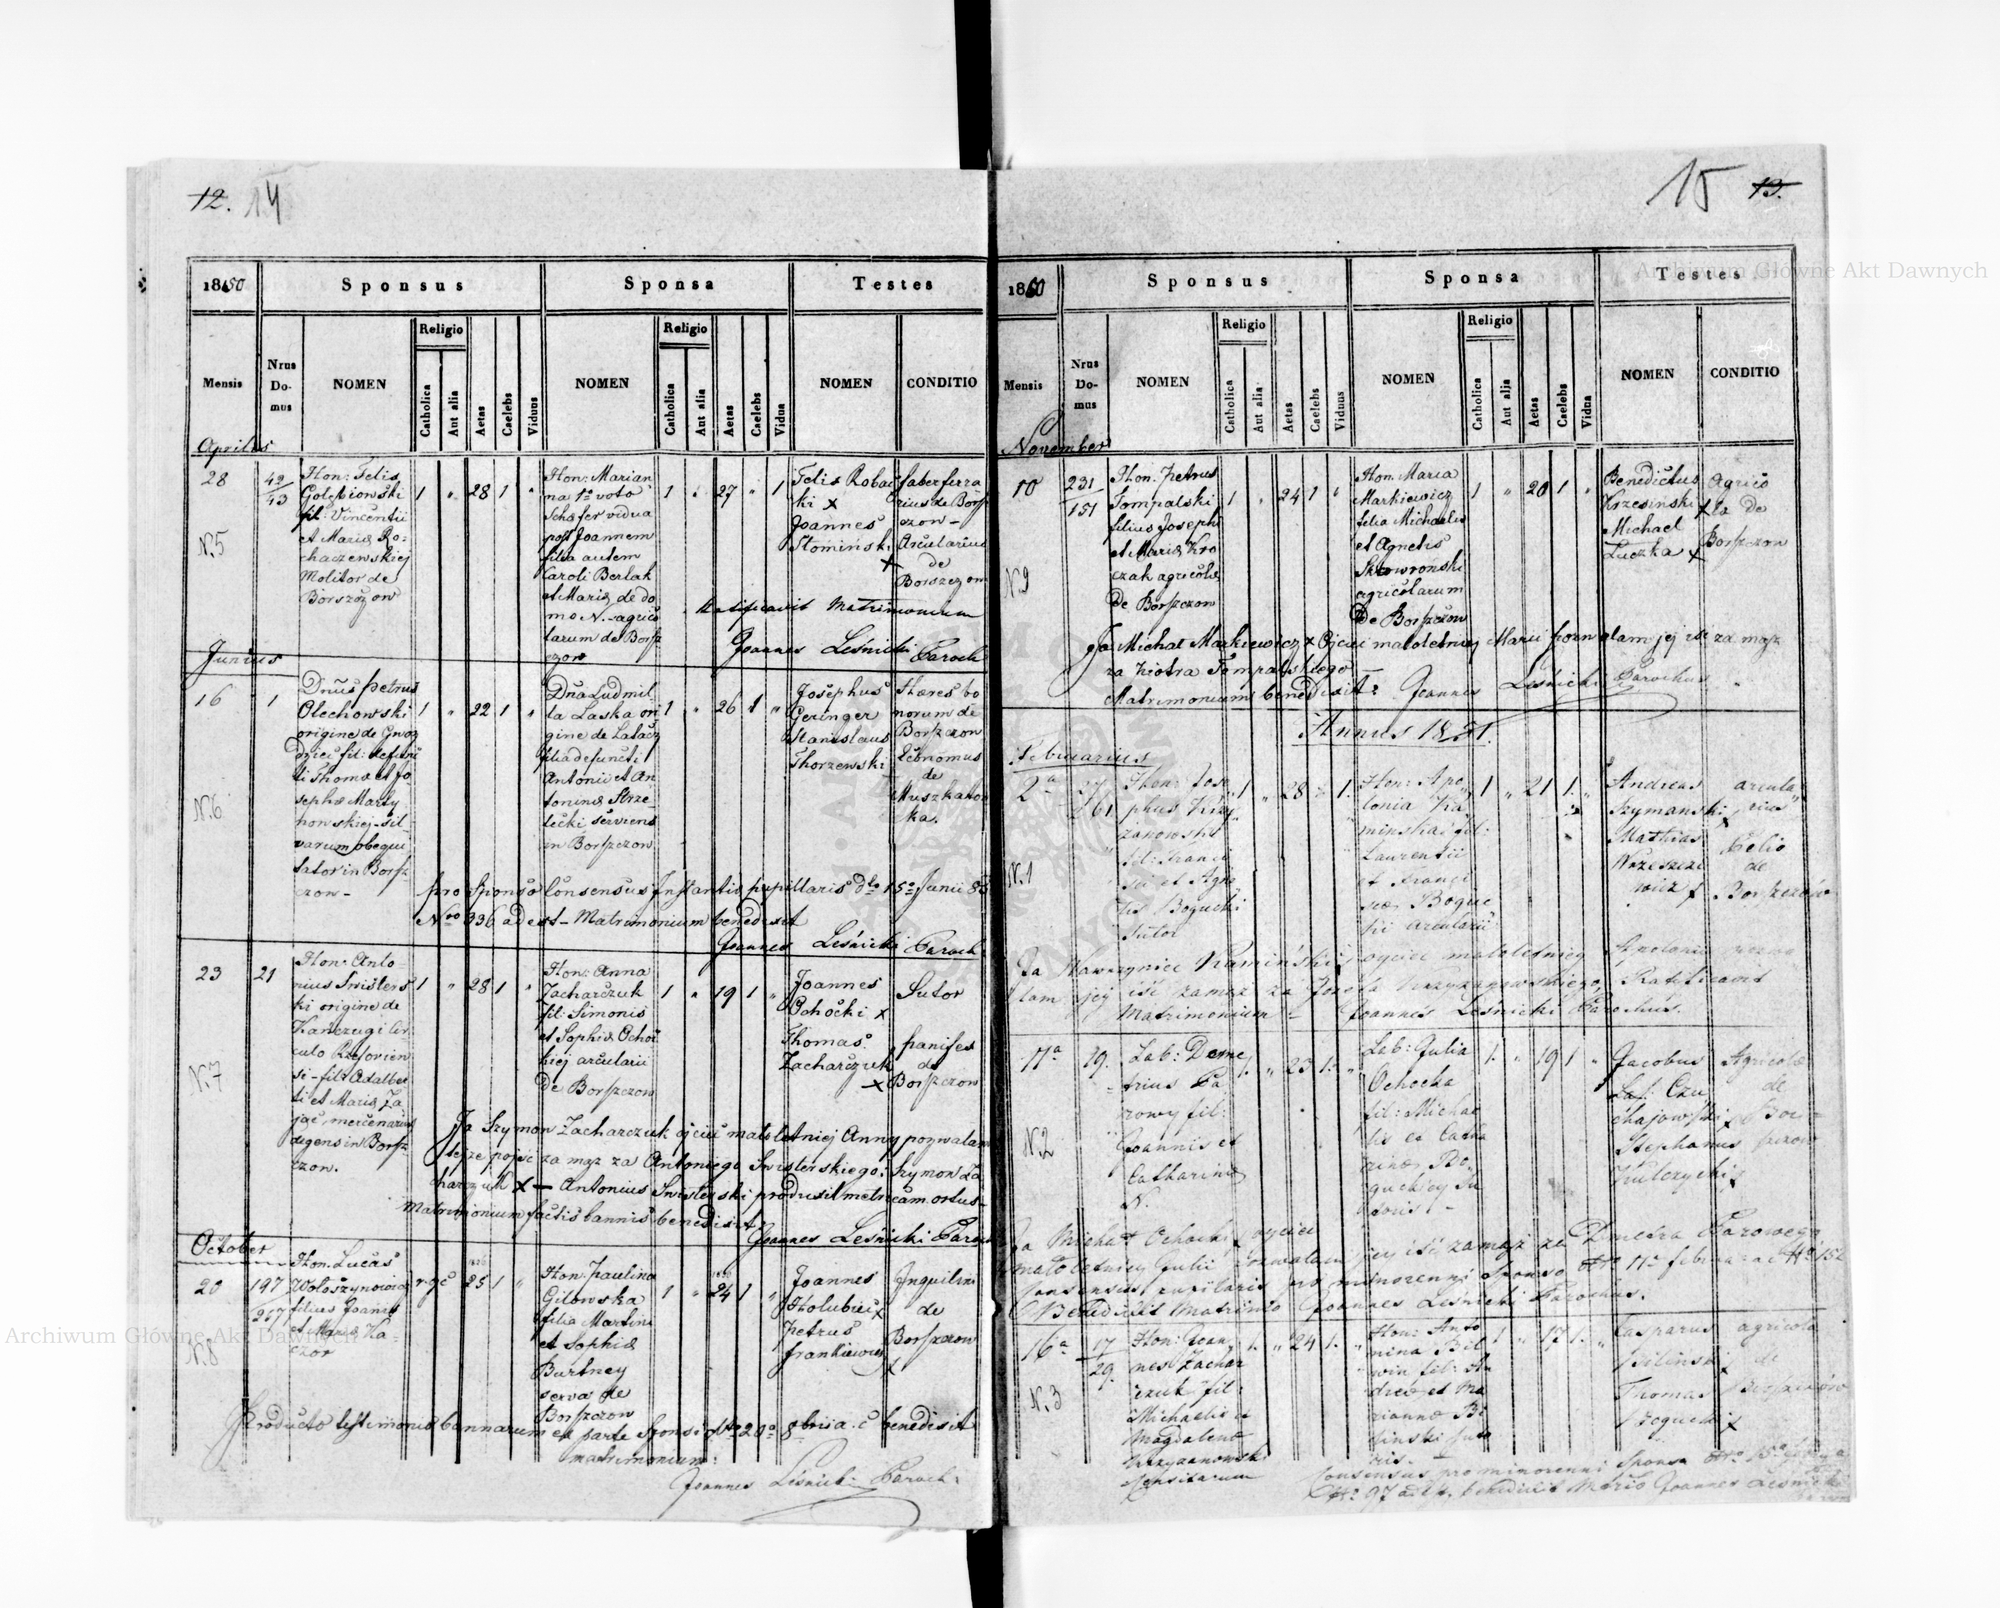 12. 14
1850
Sponsus
Sponsa
Testes
Mensis
Nrus Do- mus
NOMEN
Religio
Catholica
Aut alia
Aetas
Caelebs
Viduus
NOMEN
Religio
Catholica
Aut alia
Aetas
Caelebs
Vidua
NOMEN
CONDITIO
Aprilis
28
N.5
42/43
Hon: Felis
fil: Vincentii
et Mariæ Ro-
chaczewskiej
Molitor de
Borszczow
1 " 28 1 "
Hon: Marian
na 1º voto
Schefer vidua
post Joannem
filia autem
Caroli Berlak
et Mariæ de do
mo N.- agrico
larum de Borsz
czow
1 " 27 " 1
Felis Robac
ki x
Joannes
Słomiński
x
faber ferra
rius de Borsz
czow -
Arcularius
de
Borszczow
Ratificavit Matrimonium
Joannes Leśnicki Paroch
Junius
16
N.6
1
Dnus Petrus
Olechowski
origine de Gwoz
dziec fil: defunc
ti Thomæ et Jo
sephæ Marty
nowskiej sil-
varum obequi
tator in Borsz
czow -
1 " 22 1 "
Dna Ludmil
la Laska ori
gine de
filia defuncti
Antonii et An
toninæ Strze
lecki serviens
in Borszczow
1 " 26 1 "
Josephus
Geringer
Stanislaus
Thorzewski
Hæres bo
norum de
Borszczow
Œconomus
de
Muszkatow
ka.
pro Sponso Consensus Instantiæ pupillaris dto 15º Junii 85
Nro 936 adest - Matrimonium benedixit
Joannes Leśnicki Paroch
23
N.7
21
Hon: Anto-
nius Swisters
ki origine de
Kańczugi Cir
culo Rzesovien
si - fil: Adalber
ti et Mariæ Za
jąc, mercenarius
degens in Borsz
czow.
1 " 28 1 "
Hon: Anna
Zacharczuk
fil: Simonis
et Sophiæ Ochoc
kiej arcularii
de Borszczow
1 " 19 1 "
Joannes
Ochocki x
Thomas
Zacharczuk
x
Sutor
panifex
de
Borszczow
Ja Szymon Zacharczuk ojciec małoletniej Anny pozwalam
tejże pojść za mąż za Antoniego Swisterskiego: Szymon Za
charczuk x — Antonius Swisterski produxit metricam ortus-
Matrimonium factis bannis benedixit
Joannes Leśnicki Paroch
October
20
N.8
197
267
Hon. Lucas
Wołoszynowicz
filius Joannis
et Mariæ Ka-
czor
r. g. c 25 1 "
Hon: Paulina
Gilowska
filia Martini
et Sophiæ
Burtney
serva de
Borszczow
1 " 24 1 "
Joannes
Hołubiec x
Petrus
Frankiewicz
x
Inquilini
de
Borszczow
Producto testimonio bannarum ex parte Sponsi dto 20º 8bris a. c. benedixit
matrimonium:
Joannes Leśnicki Paroch:
15 13.
1850
Sponsus
Sponsa
Testes
Mensis
Nrus Do- mus
NOMEN
Religio
Catholica
Aut alia
Aetas
Caelebs
Viduus
NOMEN
Religio
Catholica
Aut alia
Aetas
Caelebs
Vidua
NOMEN
CONDITIO
November
10
N9
231
151
Hon. Petrus
Tompalski
filius Josephi
et Mariæ Kro
czak agricolæ
de Borszczow
1 " 24 1 "
Hon. Maria
Markiewicz
filia Michaelis
et Agnetis
Skowronski
agricolarum
de Borszczow
1 " 20 1 "
Benedictus
Krzesiński x
Michael
Luczka x
Agrico
la de
Borszczow
Ja Michał Markiewicz x Ojciec małoletniej Marii pozwalam jej iść za mąż
za Piotra Tompalskiego -
Matrimonium benedixit: Joannes Leśnicki Parochus
Annus 1851.
Februarius
2ª
N.1
261
Hon: Jose
phus Krzy
zanowski
fil: Franci
sci et Agne
tis Bogucki
Sutor
1 " 28 " 1.
Hon: Apo
lonia Ka
minska fil:
Laurentii
et Franci
scæ Boguc
kii arcularii
1 " 21 1. "
Andreas
Szymanski x
Mathias
Wrzeszcze
wicz x
arcula
rius
Pelio
de
Borszczow
Ja Wawrzyniec Kamiński x ojciec małoletniej Apolonii pozwa
lam jej iść zamąż za Jozefa Krzyzanowskiego, Ratificavit
Matrimonium - Joannes Leśnicki Parochus.
11ª
N.2
19.
Lab: Deme
trius Pa
rowy fil:
Joannis et
Catharinæ
N.
1. " 23 1. "
Lab: Julia
Ochocka
fil: Michae
lis et Catha
rinæ Bo
guckiej Su
toris -
1. " 19 1 "
Jacobus
Czu
chajowski x
Stephanus
Kulczycki x
Agricolæ
de
Bor-
szczow
Ja Michał Ochocki x ojciec
małoletniej Julii pozwalam jej iść zamąż za Dmetra Parowego
Consensus pupilaris pro minorenni Sponso dto 11a februar a c No 152
Benedixit Matrimo Joannes Leśnicki Parochus.
16ª
N.3
17
29.
Hon: Joan
nes Zachar
czuk fil:
Michaelis et
Magdalenæ
Krzyzanowski
1. " 24 1. "
Hon: Anto
nina Bil
fil: An
dreæ et Ma
riannæ Bi
linski Suto
ris. -
1 " 17 1. "
Gasparus
Bilinski x
Thomas
Bogucki x
agricolæ
de
Borszczow
Consensus pro minorenni Sponsa
No 97 adest, benedixit Matrio Joannes Leśnicki